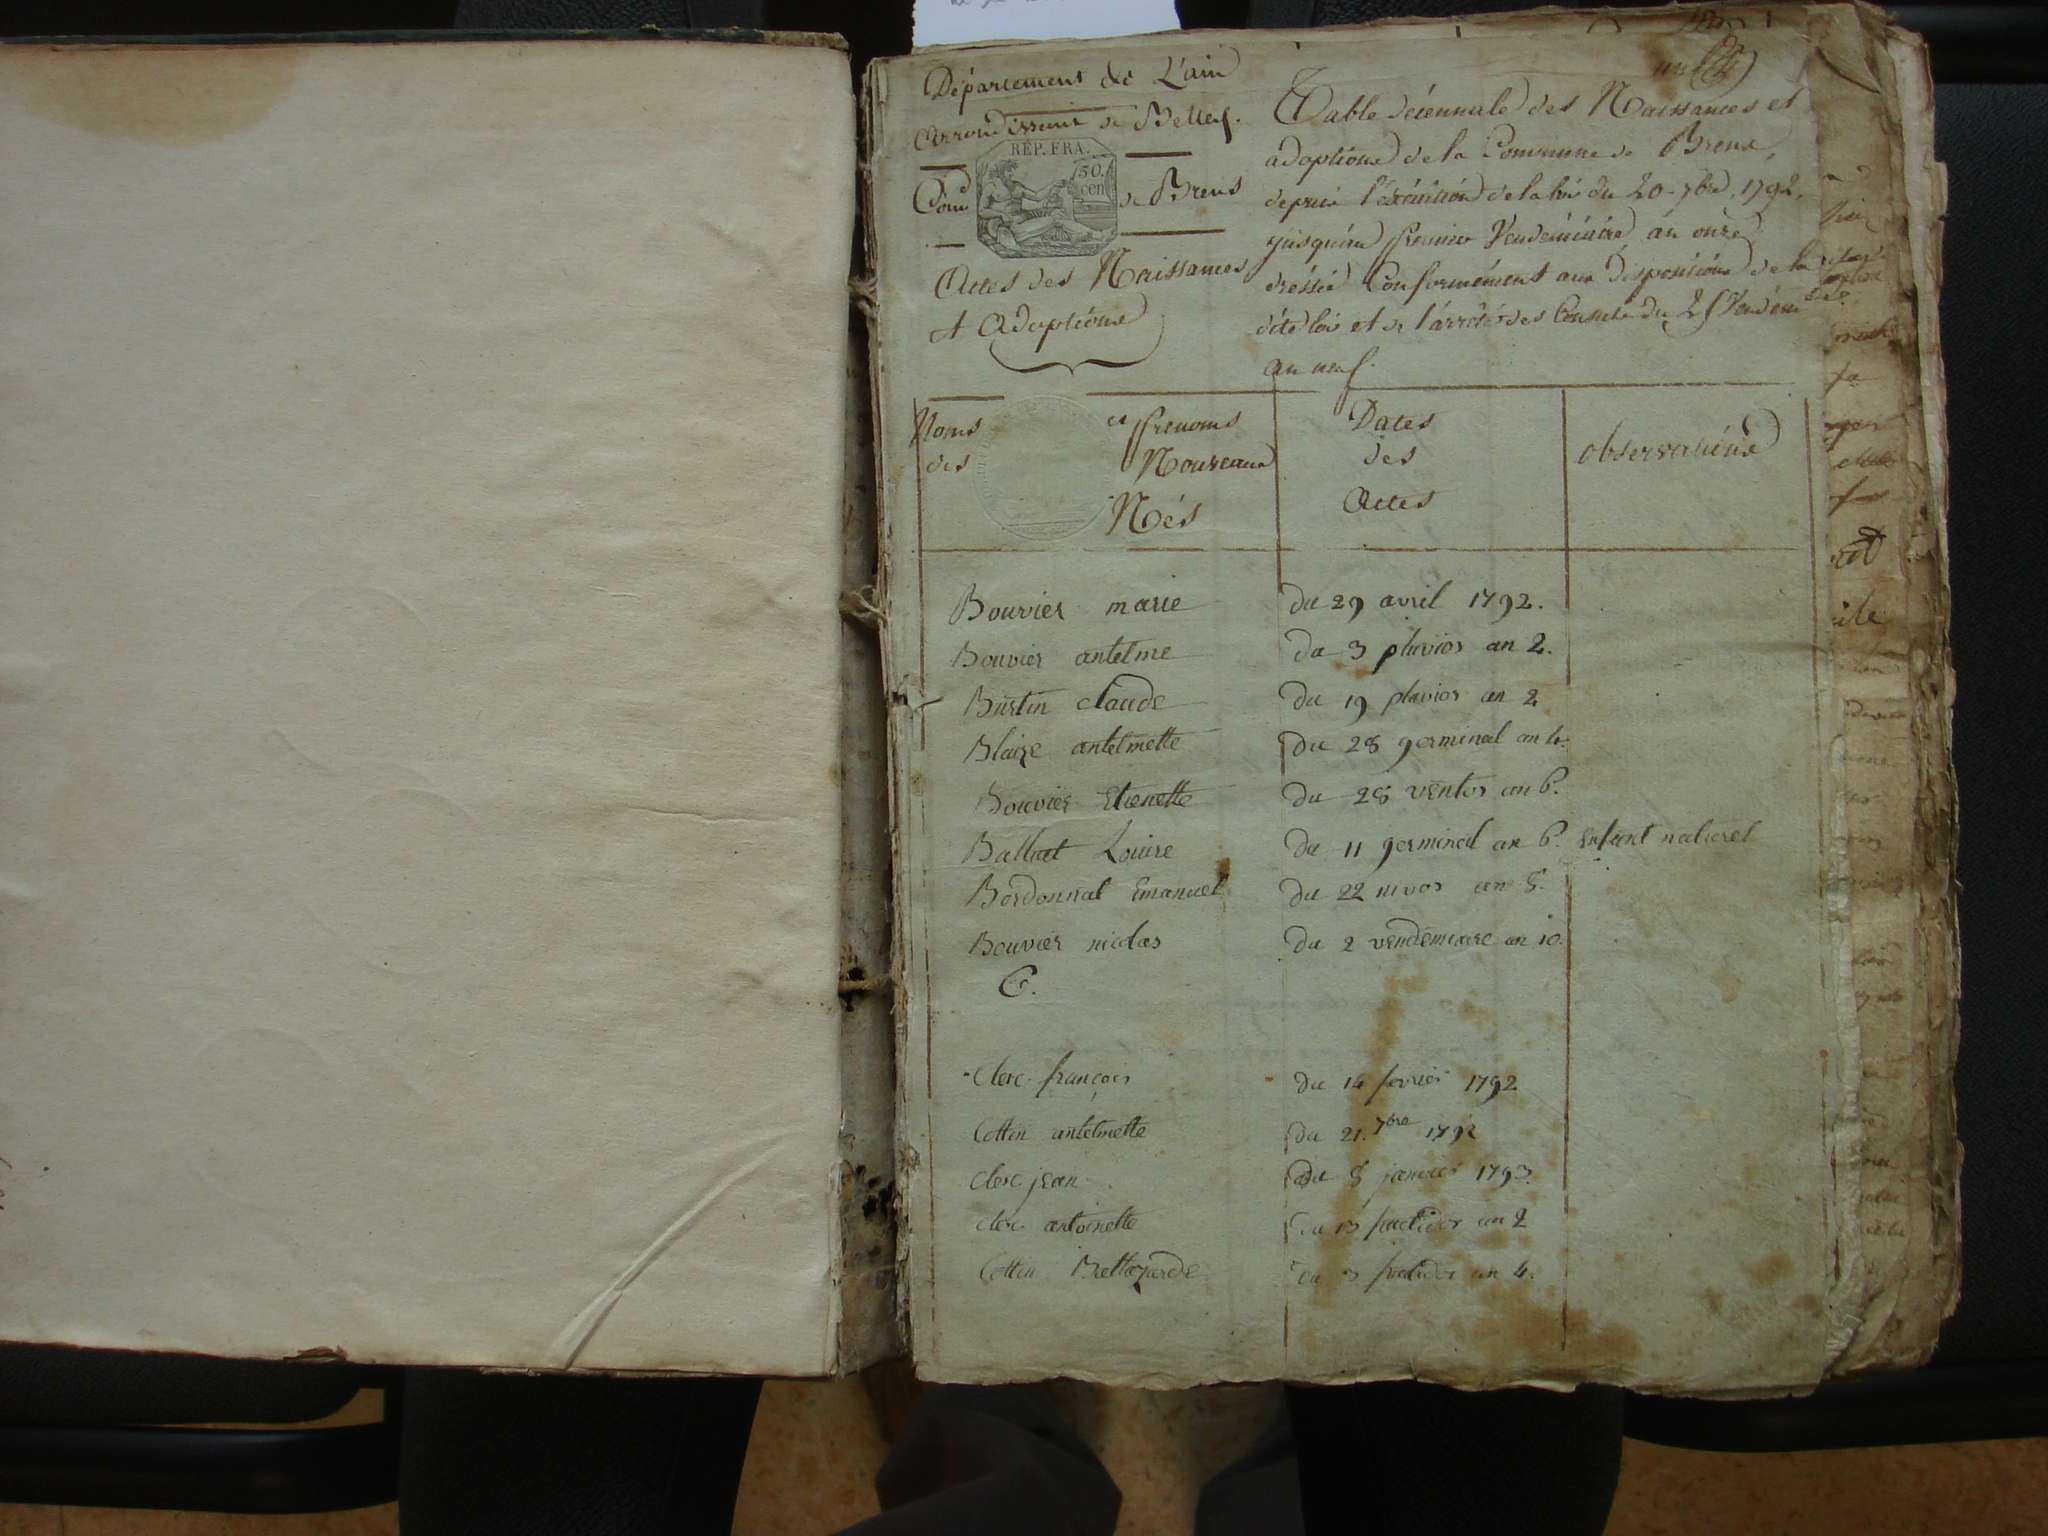 Département de L'ain
Arrondissemt de Belley.
RÉP. FRA.
50.
cen
Com de Brens
Actes des Naissances
et Adoptions
Table décennale des Naissances et
adoptions de la Commune de Brens,
depuis l'éxécution de la loi du 20 7bre, 1792,
jusqu'au premier Vendémiaire an onze
dréssée Conformément aux dispositions de la
dite loi et de l'arrêté des Consuls du 25 Vendém
an neuf.
Noms et prenoms
des Nouveaux
Nés
Dates
des
Actes
observations
Bouvier marie du 29 avril 1792.
Bouvier antelme du 3 pluvios an 2.
Burtin claude du 19 pluvios an 2
Blaize antelmette du 28 germinal an 4.
Bouvier Etienette du 28 ventos an 6.
Balluet Louise du 11 germinal an 6. enfant naturel
Bordonnat Emanuel du 22 nivos an 8.
Bouvier nicolas du 2 vendemiaire an 10.
C.
Clerc françois du 14 fevrier 1792
Cottin antelmette du 21. 7bre 1792
Clerc jean du 8 janvier 1793.
clerc antoinette du 13 fructidor an 2
Cottin Bellegarde du 3 frutidor an 4.